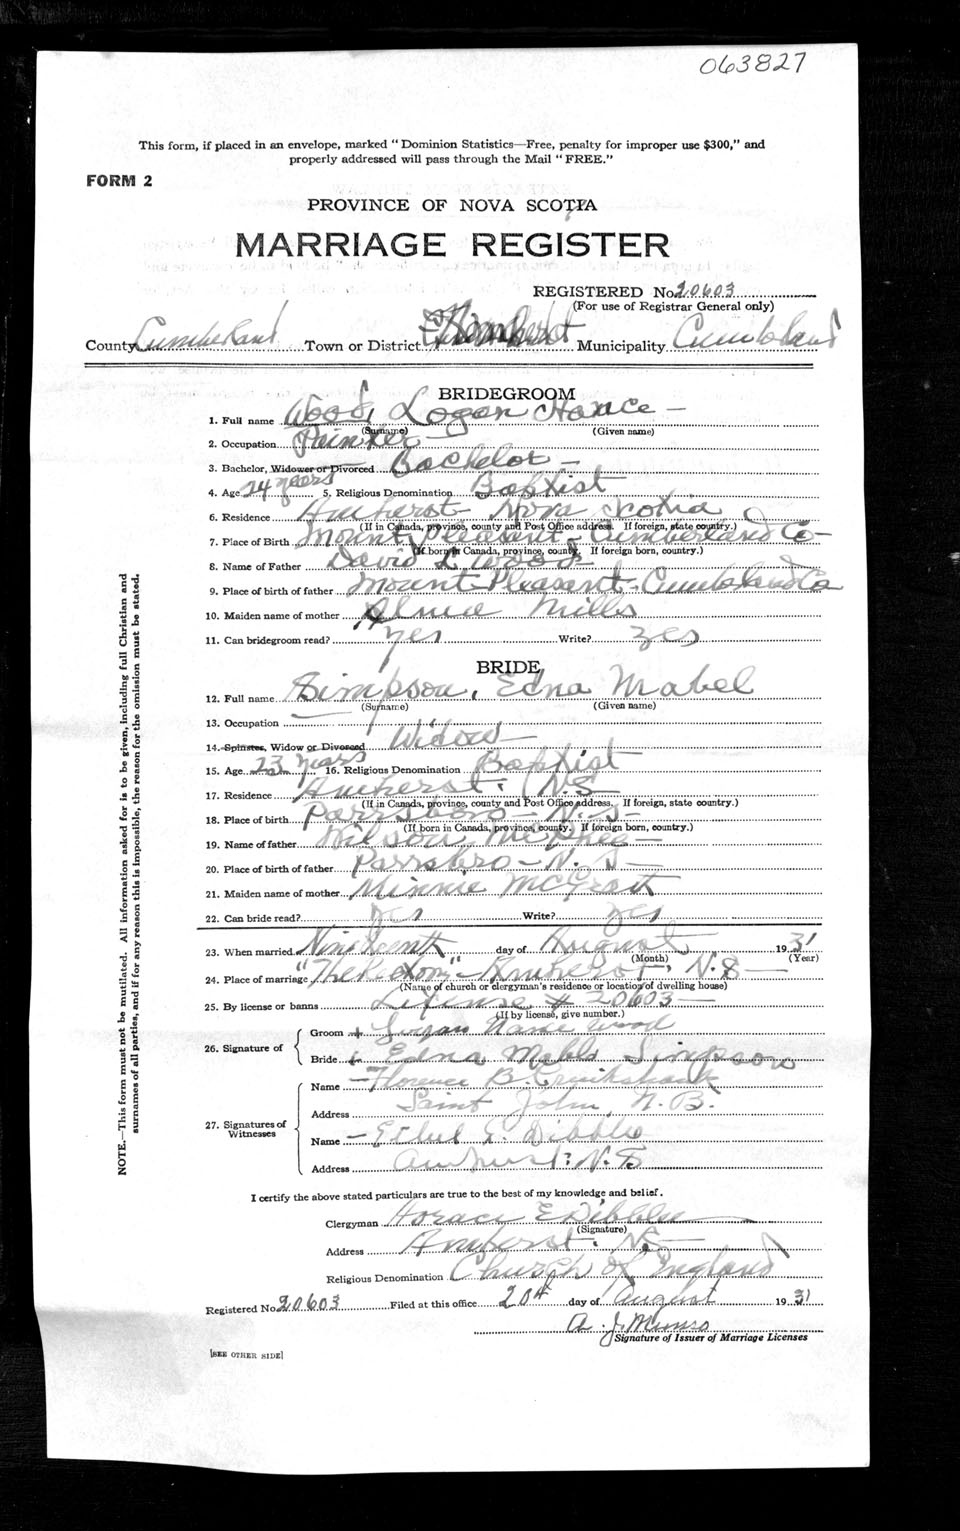 063827
This form, if placed in an envelope, marked "Dominion Statistics—Free, penalty for improper use $300," and
properly addressed will pass through the Mail "FREE."
FORM 2
PROVINCE OF NOVA SCOTIA
MARRIAGE REGISTER
REGISTERED No. 20603
(For use of Registrar General only)
County Cumberland Town or District Amherst Municipality Cumberland
BRIDEGROOM
1. Full name Wood, Logan Hance
(Surname) (Given name)
2. Occupation Painter
3. Bachelor, Widower or Divorced Bachelor
4. Age 24 years 5. Religious Denomination Baptist
6. Residence Amherst Nova Scotia
(If in Canada, province, county and Post Office address. If foreign, state country.)
7. Place of Birth Mount Pleasant - Cumberland Co-
(If born in Canada, province, county. If foreign born, country.)
8. Name of Father David L Wood
9. Place of birth of father Mount Pleasant - Cumberland Co
10. Maiden name of mother Mills
11. Can bridegroom read? yes Write? yes
BRIDE
12. Full name Simpson, Edna Mabel
(Surname) (Given name)
13. Occupation
14. Spinster, Widow or Divorced Widow
15. Age 23 years 16. Religious Denomination Baptist
17. Residence Amherst. N.S
(If in Canada, province, county and Post Office address. If foreign, state country.)
18. Place of birth Parrsboro - N.S-
(If born in Canada, province, county. If foreign born, country.)
19. Name of father Wilson McPhee
20. Place of birth of father Parrsboro - N. S
21. Maiden name of mother Minnie McGrath
22. Can bride read? yes Write? yes
23. When married Nineteenth day of August 1931
(Month) (Year)
24. Place of marriage "The Rectory" - Amherst, N.S
(Name of church or clergyman's residence or location of dwelling house)
25. By license or banns License # 20603
(If by license, give number.)
26. Signature of
Groom Logan Wood
Bride Edna Simpson
27. Signatures of Witnesses
Name Florence B. Cruikshank
Address Saint John, N.B.
Name Ethel E. Dibblee
Address Amherst. N.S
I certify the above stated particulars are true to the best of my knowledge and belief.
Clergyman Horace E Dibblee
(Signature)
Address Amherst. NS
Religious Denomination Church of England
Registered No 20603 Filed at this office 20th day of August 1931
A. J. Munro
Signature of Issuer of Marriage Licenses
[SEE OTHER SIDE]
NOTE.—This form must not be mutilated. All information asked for is to be given, including full Christian and
surnames of all parties, and if for any reason this is impossible, the reason for the omission must be stated.